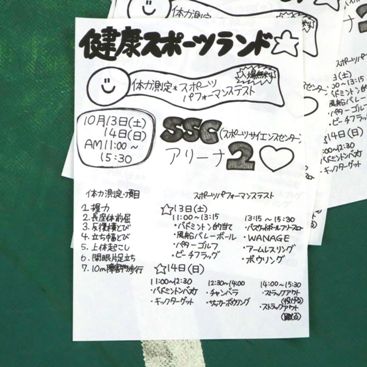 健康スポーツランド☆
体力測定&スポーツ
パフォーマンステスト
入場無料
10月13日(土)
14日(日)
AM11:00〜
15:30
SSC(スポーツサイエンスセンター)
アリーナ2♡
体力測定項目
1. 握力
2. 長座体前屈
3. 反復横とび
4. 立ち幅とび
5. 上体起こし
6. 開眼片足立ち
7. 10m障害物歩行
スポーツパフォーマンステスト
☆13日(土)
11:00〜13:15
・バドミントン的当て
・風船バレーボール
・パターゴルフ
・ビーチフラッグ
13:15〜15:30
・バスケットボールフリースロー
・WANAGE
・アームレスリング
・ボウリング
☆14日(日)
11:00〜12:30
・バドミントン的当て
・キックターゲット
12:30〜14:00
・チャンバラ
・サッカーボウリング
14:00〜15:30
・ストラックアウト
(投げる)
・ストラックアウト
(蹴る)